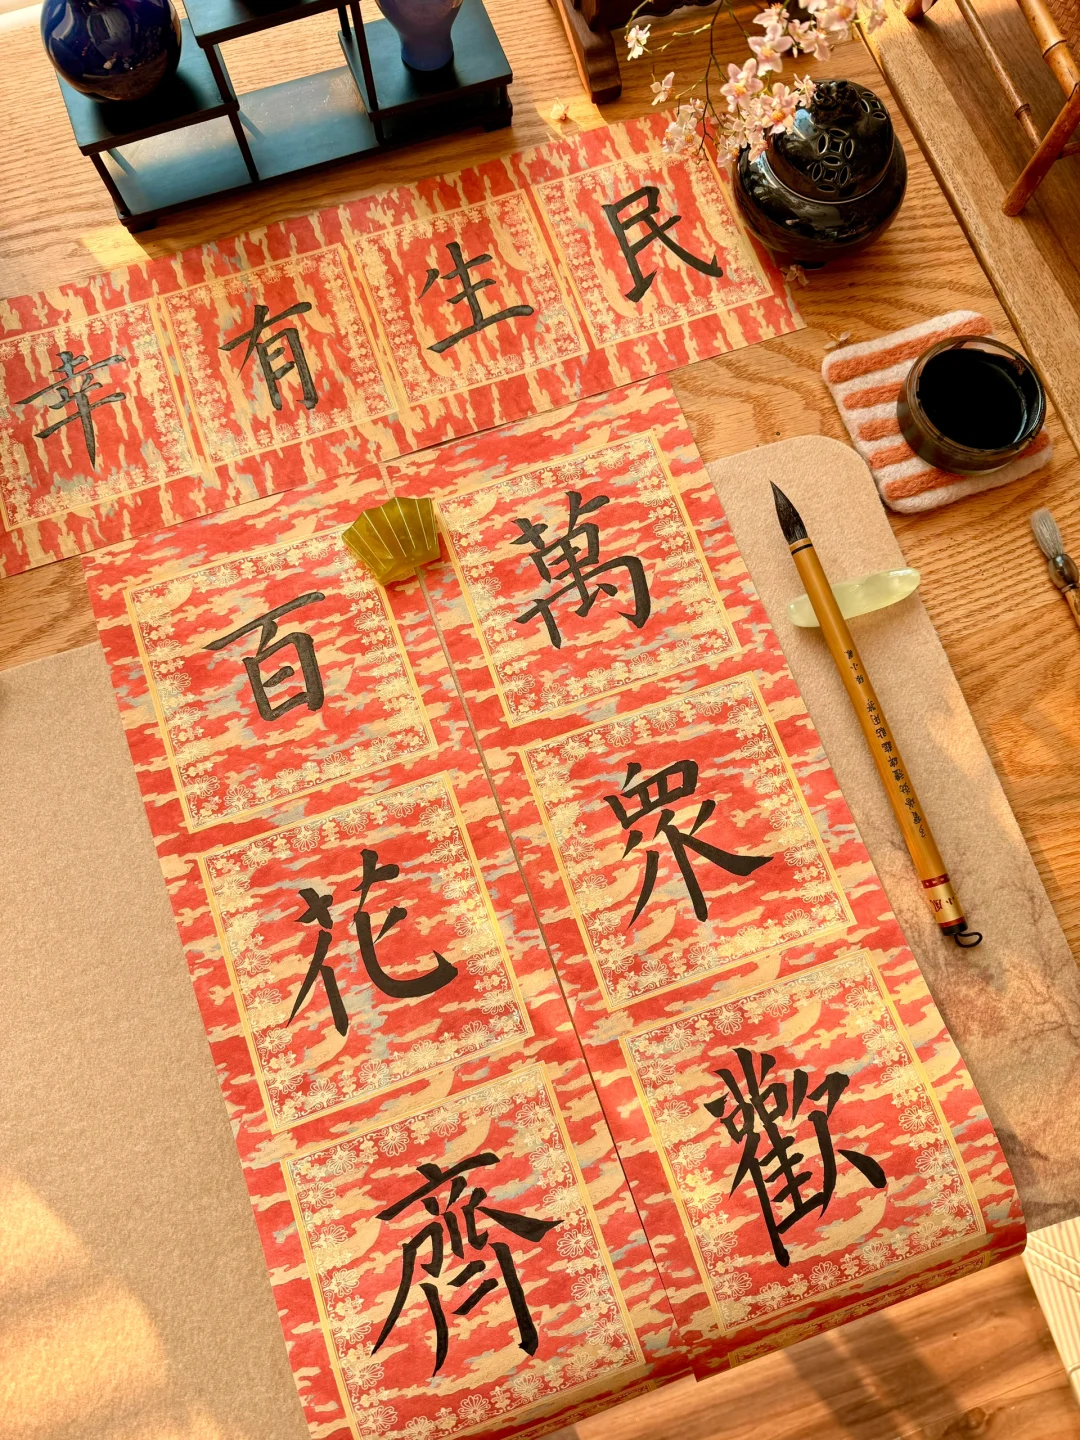 民生有幸
萬眾歡
百花齊